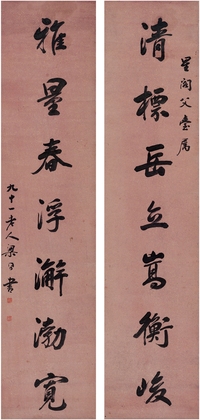 清標岳立嵩衡峻
星閣父臺屬
雅量春浮澥渤寬
九十一老人梁同書